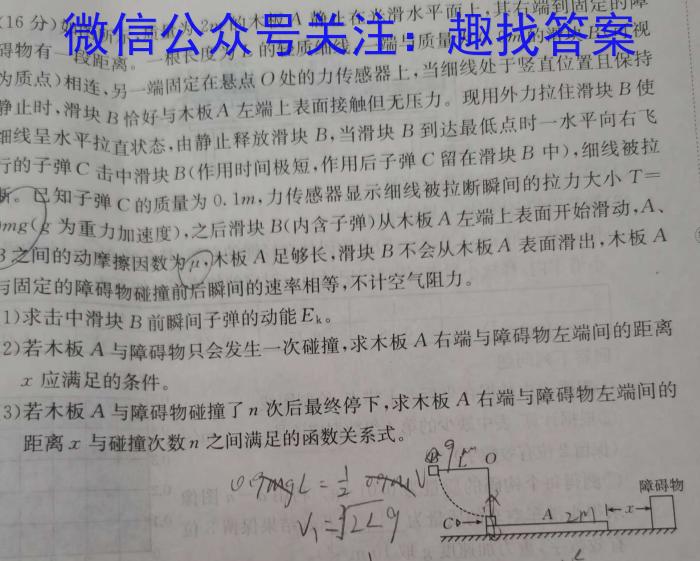 (16分)
微信公众号关注：趣找答案
碍物有一段距离。一根长度为
为质点)相连,另一端固定在悬点O处的力传感器上,当细线处于竖直位置且保持
静止时,滑块B恰好与木板A左端上表面接触但无压力。现用外力拉住滑块B使
细线呈水平拉直状态,由静止释放滑块B,当滑块B到达最低点时一水平向右飞
行的子弹C击中滑块B(作用时间极短,作用后子弹C留在滑块B中),细线被拉
断。已知子弹C的质量为0.1m,力传感器显示细线被拉断瞬间的拉力大小T=
mg(g为重力加速度),之后滑块B(内含子弹)从木板A左端上表面开始滑动,A、
B之间的动摩擦因数为μ,木板A足够长,滑块B不会从木板A表面滑出,木板A
与固定的障碍物碰撞前后瞬间的速率相等,不计空气阻力。
1)求击中滑块B前瞬间子弹的动能Eₖ。
2)若木板A与障碍物只会发生一次碰撞,求木板A右端与障碍物左端间的距离
x应满足的条件。
3)若木板A与障碍物碰撞了n次后最终停下,求木板A右端与障碍物左端间的
距离x与碰撞次数n之间满足的函数关系式。
B O
障碍物
V₁=√2Lg
C A 2m x